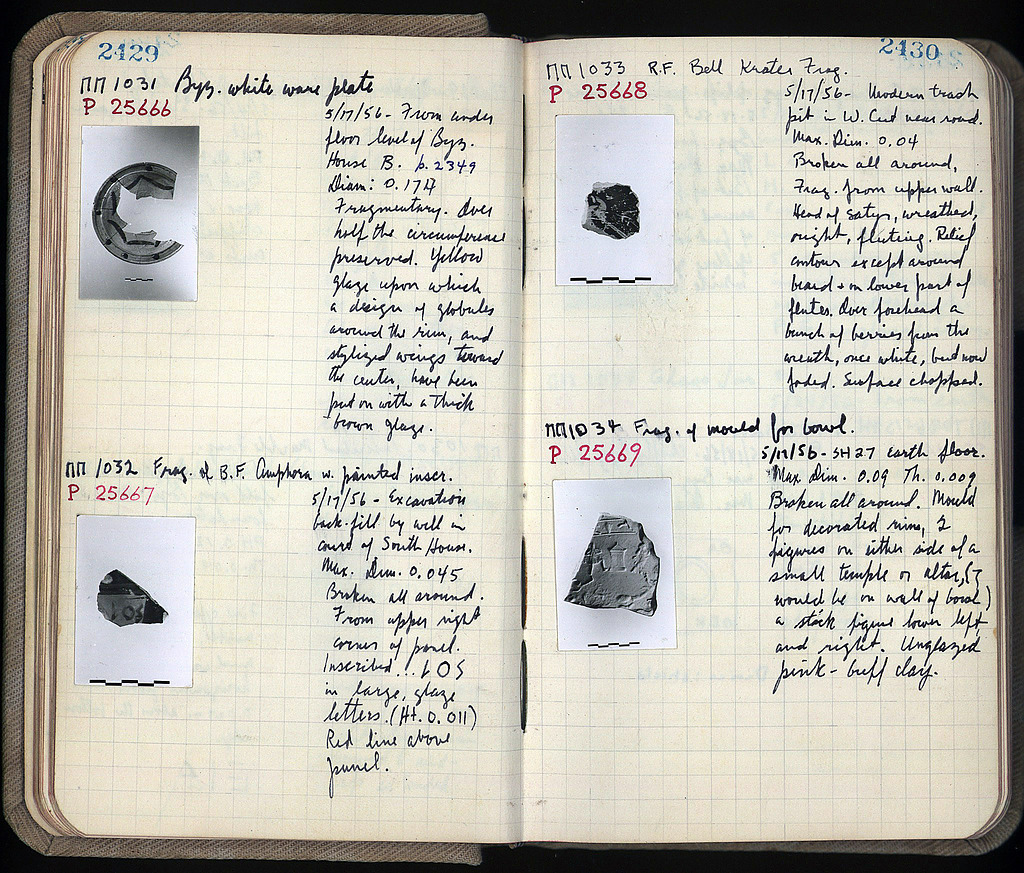 2429
ΠΠ 1031 Byz. white ware plate
P 25666
5/17/56 - From under
floor level of Byz.
House B. p. 2349
Diam: 0.174
Fragmentary. Over
half the circumference
preserved. Yellow
glaze upon which
a design of globules
around the rim, and
stylized wings toward
the center, have been
put on with a thick
brown glaze.
ΠΠ 1032 Frag. of B.F. Amphora w. painted inscr.
P 25667
5/17/56 - Excavation
back-fill by well in
court of South House.
Max. Dim. 0.045
Broken all around.
From upper right
corner of panel.
Inscribed ... LOS
in large, glaze
letters. (Ht. 0.011)
Red line above
panel.
2430
ΠΠ 1033 R.F. Bell Krater Frag.
P 25668
5/17/56 - Modern trash
pit in W. Cut near road.
Max. Dim. 0.04
Broken all around,
Frag. from upper wall.
Head of Satyr, wreathed,
right, fluting. Relief
contour except around
beard + on lower part of
flutes. Over forehead a
bunch of berries from the
wreath, once white, but now
faded. Surface chopped.
ΠΠ 1034 Frag. of mould for bowl.
P 25669
5/17/56 - SH 27 earth floor.
Max Dim. 0.09 Th. 0.009
Broken all around. Mould
for decorated rim, 2
figures on either side of a
small temple or altar, (
would be on wall of bowl)
a stick figure lower left
and right. Unglazed
pink-buff clay.